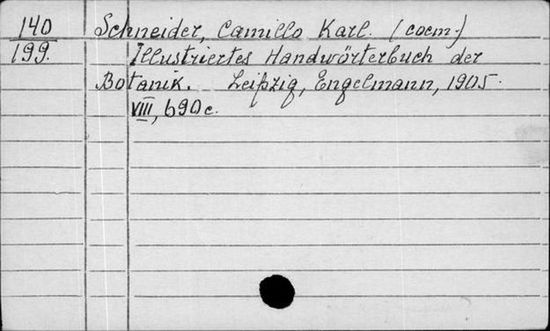 140 Schneider, Camillo Karl. (coem.)
199. Illustriertes Handwörterbuch der
Botanik. Leipzig, Engelmann, 1905.
VIII, 690 c.